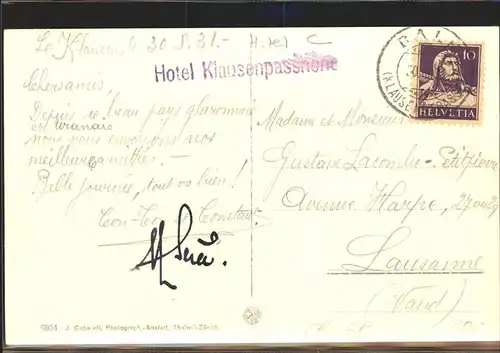 Le Klausen, le 30.8.31.- Hotel C
Hotel Klausenpasshöhe
Chers amis,
Depuis ce beau pays glaronnais
et uranais
nous vous envoyons nos
meilleures amitiés.-
Belle journée, tout va bien!
et Constant.
Madame et Monsieur
Gustave Lacombe-Petitpierre
Avenue Harpe, 27 ou 29
Lausanne
(Vaud)
10
HELVETIA
BAL
(KLAUSE
6954 J. Gaberell, Photograph.-Anstalt, Thalwil-Zürich